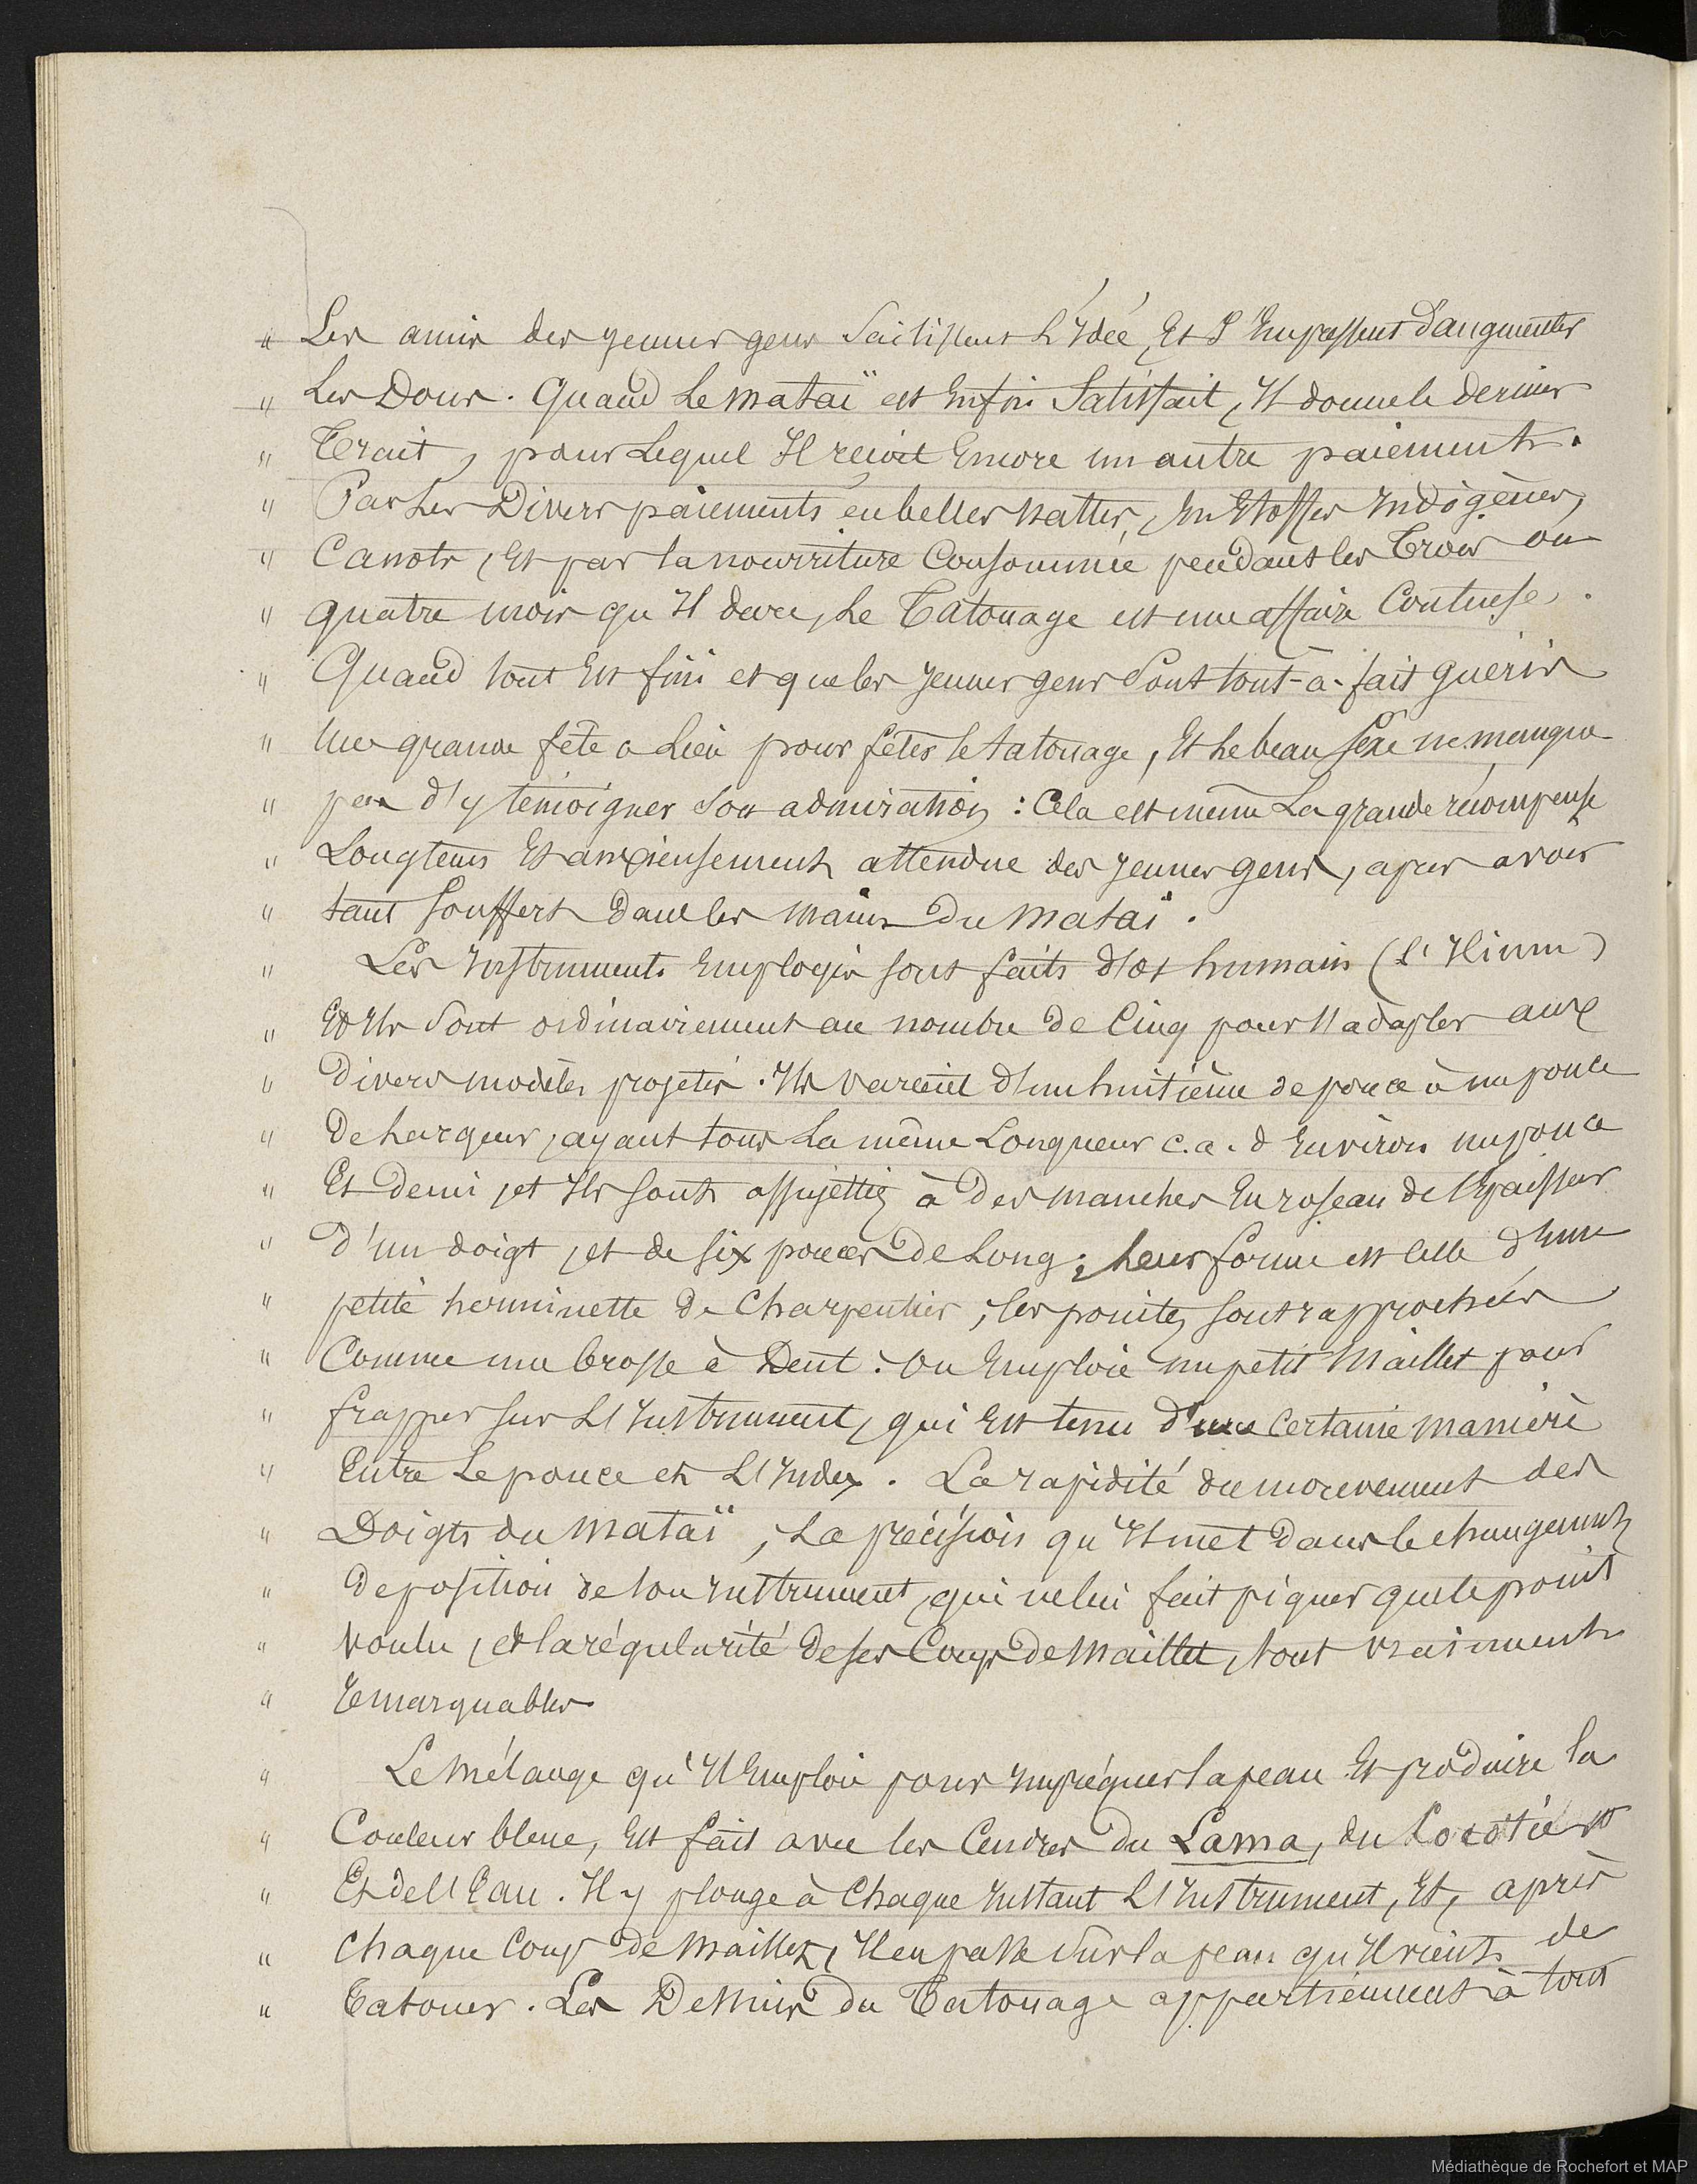 " Les amis des jeunes gens saisissent l'Idée, Et s'Empressent d'augmenter
" Les Dons. Quand Le Mataï est Enfin Satisfait, Il donne le dernier
" Trait, pour Lequel Il reçoit Encore un autre paiement.
" Par Les Divers paiements en belles Nattes, En Etoffes Indigènes,
" Canots, Et par la nourriture Consommée pendant les Trois ou
" quatre mois qu'Il dure, Le Tatouage est une affaire Couteuse.
" Quand tout Est fini et que les Jeunes gens sont tout-à-fait guéris
" Une grande fête a Lieu pour fêter le tatouage, Et Le beau sexe ne manque
" pas d'y témoigner son admiration : Cela est même La grande récompense
" Longtems Et anxieusement attendue des jeunes gens, apres avoir
" tant Souffert dans les mains Du Mataï.
" Les Instruments Employés sont faits d'os humain (l'Ilium)
" Et Ils Sont ordinairement au nombre de Cinq pour s'adapter aux
" divers modèles projetés. Ils varient d'un huitième de pouce à un pouce
" De Largeur, ayant tous La même Longueur c.a.d Environ un pouce
" Et Demi, et Ils sont assujettis à Des manches En roseau de l'Epaisseur
" d'un doigt, et de six pouces De Long ; Leur forme est celle d'une
" petite herminette De Charpentier, les pointes sont rapprochées
" Comme une brosse à Dent. On Emploie un petit Maillet pour
" frapper sur L'Instrument, qui Est tenu d'une certaine manière
" Entre Le pouce et L'Index. La rapidité du mouvement des
" Doigts du Mataï, La précision qu'Il met Dans le changement
" de position de son Instrument, qui ne lui fait piquer que le point
" voulu, et la régularité De ses Coups De Maillet, sont vraiment
" remarquables
" Le Mélange qu'Il Emploie pour Imprégner la peau Et produire la
" Couleur bleue, Est fait avec les Cendres Du Lama, du Cocotier
" Et de l'Eau. Il y plonge à Chaque Instant L'Instrument, Et, après
" Chaque Coup De Maillet, Il en passe sur la peau qu'Il vient de
" Tatouer. Les Dessins Du Tatouage appartiennent à tous
Médiathèque de Rochefort et MAP